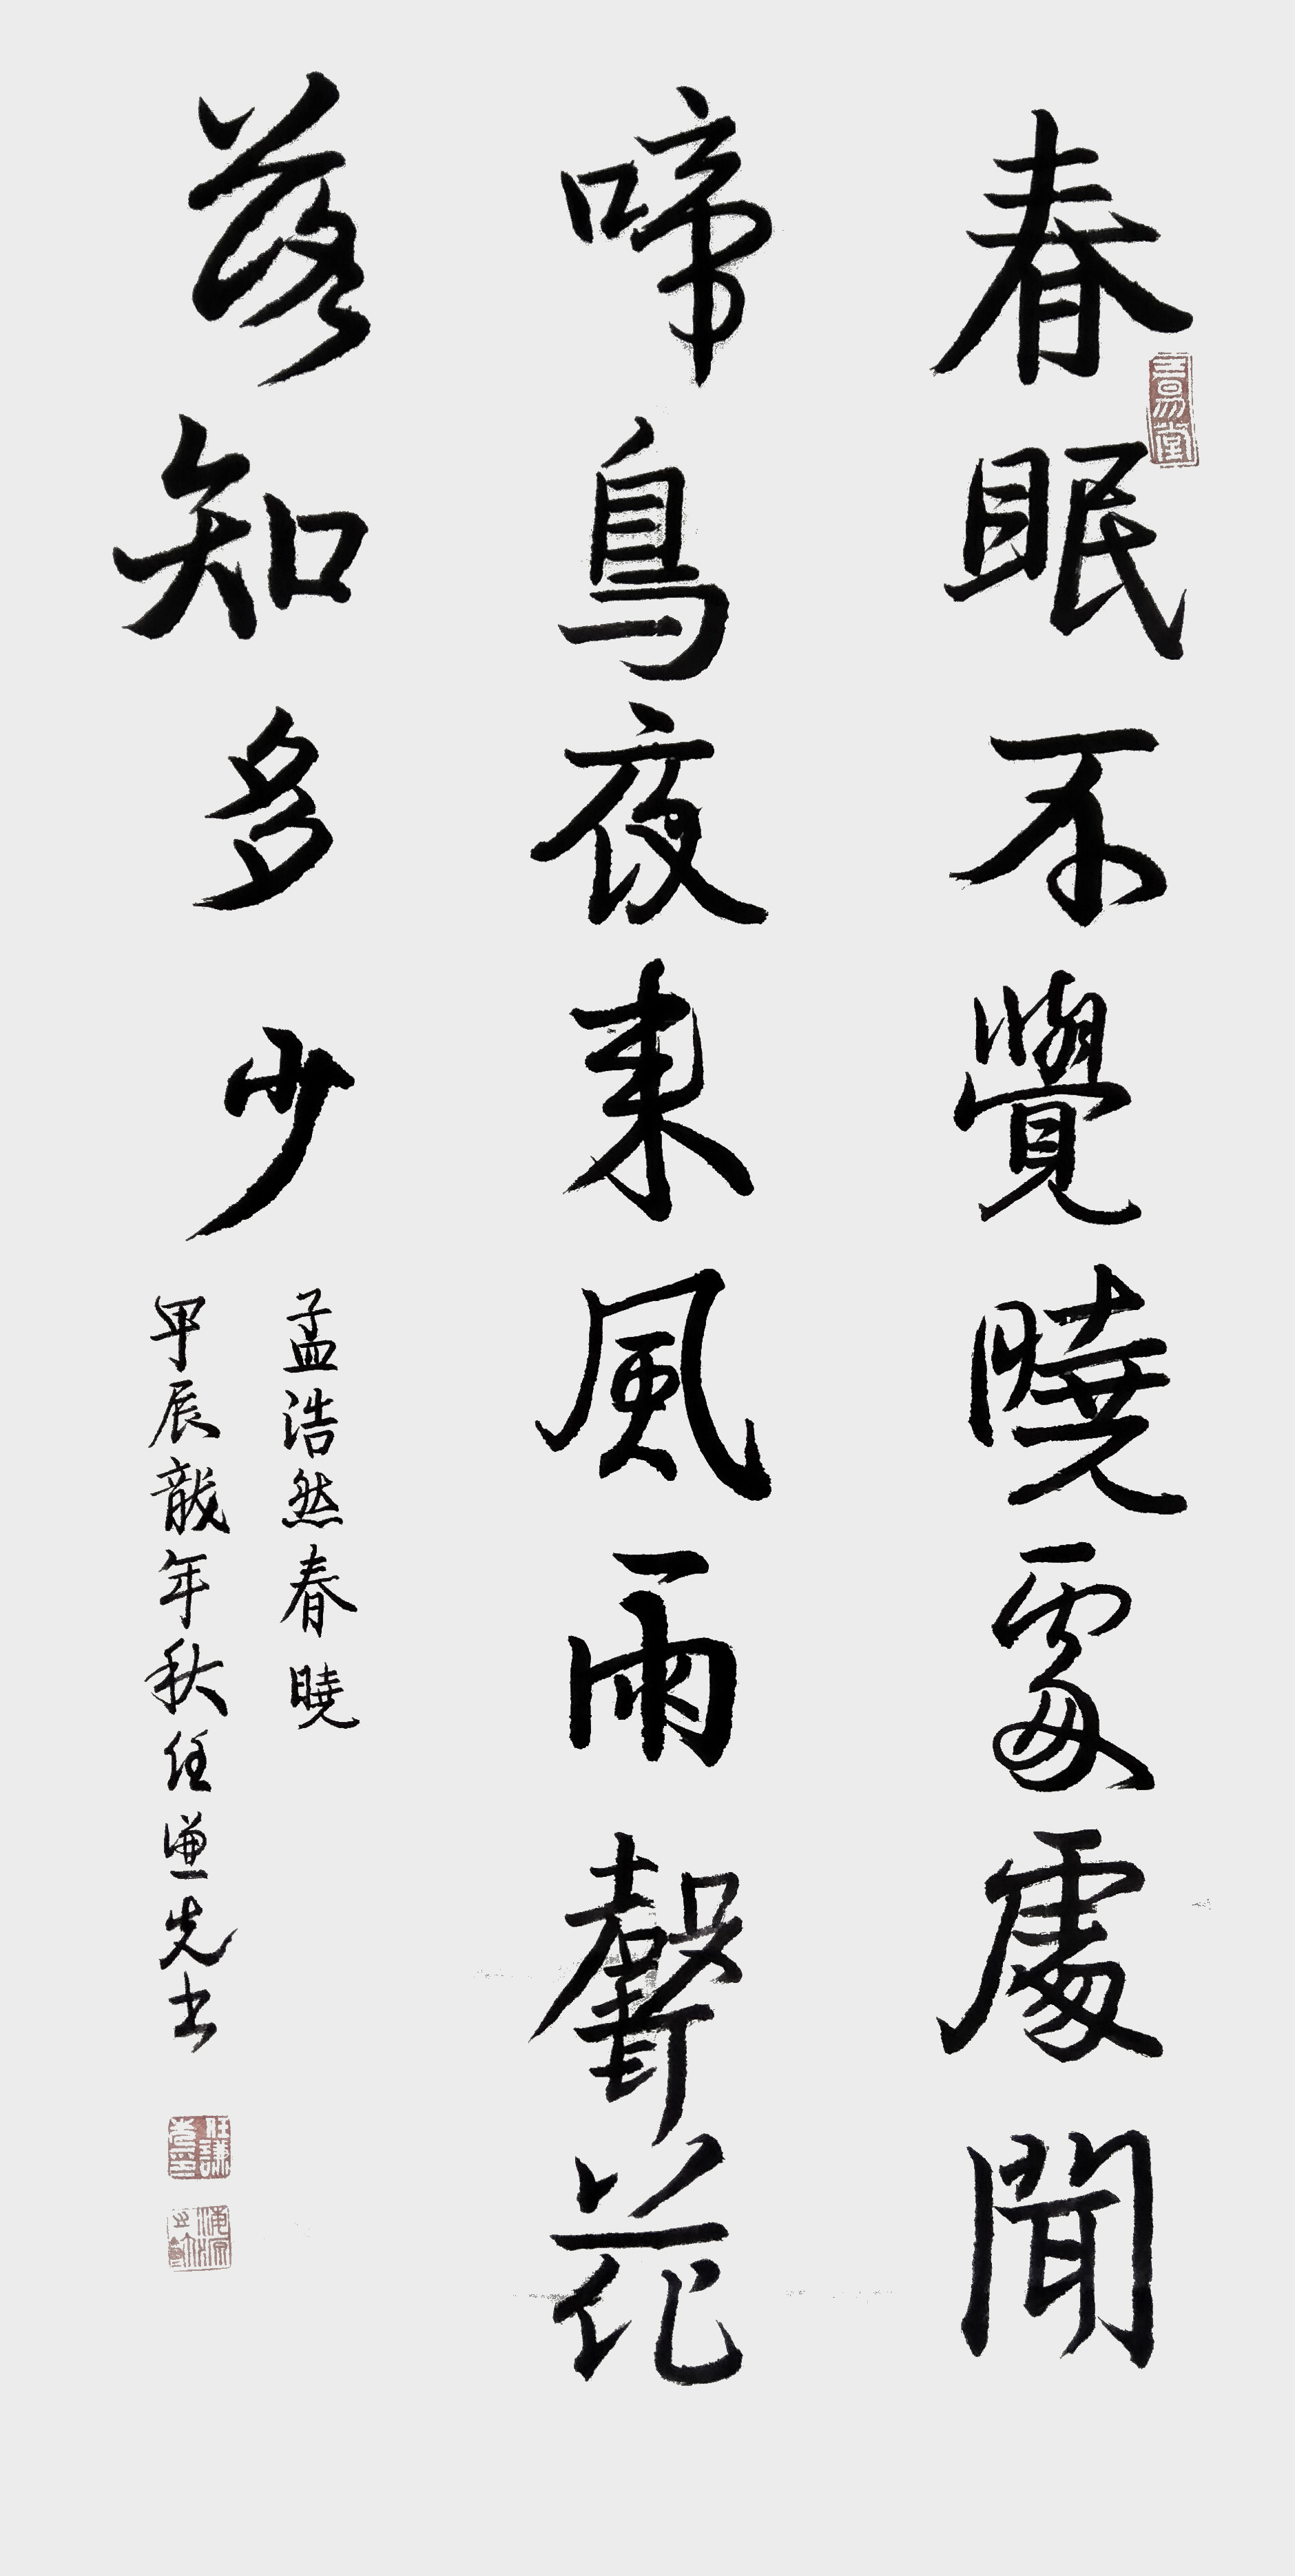 春眠不覺曉處處聞
啼鳥夜來風雨聲花
落知多少
孟浩然春曉
甲辰龍年秋任谦先书